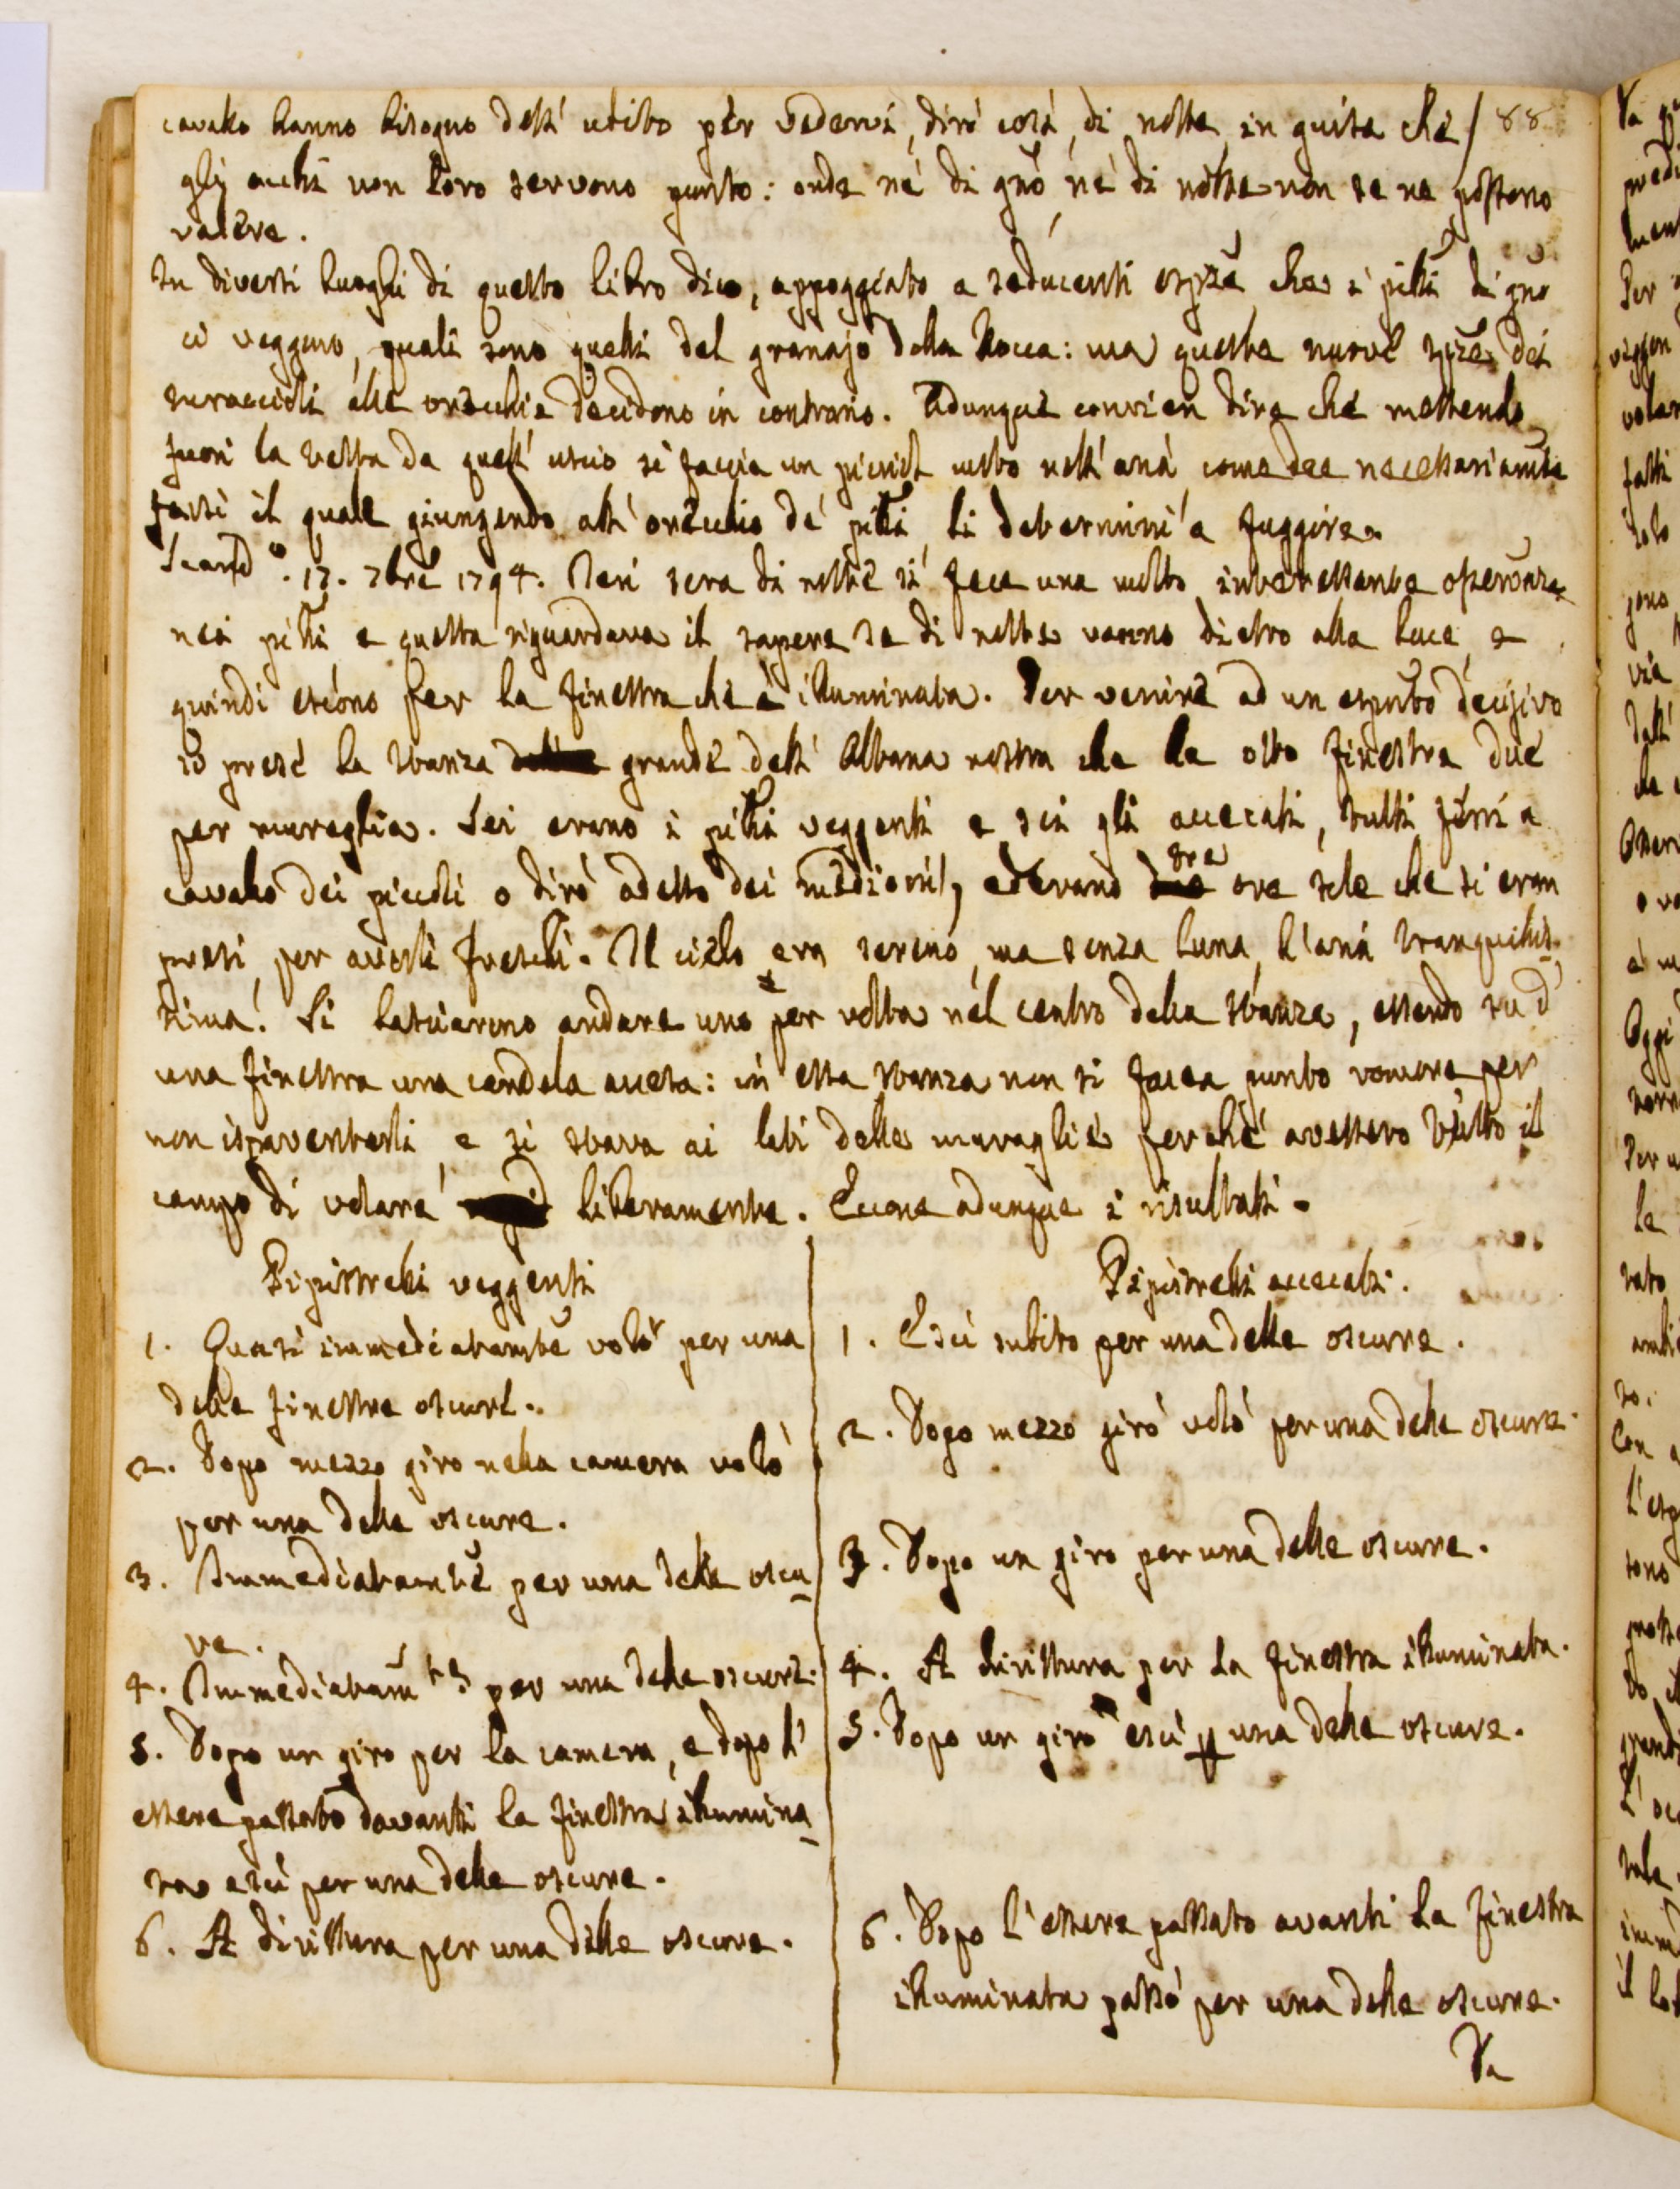 cavallo hanno bisogno dell' udito per vedervi, dirò così, di notte, in guisa che / 88
gli occhi non loro servono punto: onde né di gnō né di notte non se ne possono
valere.
In diversi luoghi di questo libro dico, appoggiato a seducenti espzē che i pilli di gno
ci veggono, quali sono quelli del granajo della Rocca: ma queste nuove spzē dei
turaccioli alle orecchie decidono in contrario. Adunque convien dire che mettendo
fuori la testa da quell' uscio si faccia un picciol moto nell' aria come dee necessariamte
farsi il quale giungendo all' orecchio de' pilli, li determini a fuggire.
Scandº. 17. 7bre 1794. Jeri sera di notte si fece una molto interessante osservaz
nei pilli e questa riguardava il sapere se di notte vanno dietro alla luce, e
quindi escono per la finestra che è illuminata. Per venire ad un esprmto decisivo
io presi la stanza grande dell' Albana nostra che ha otto finestre due
per muraglia. Sei erano i pilli veggenti e sei gli accecati, tutti ferri a
cavallo dei piccoli o dirò adesso dei mezzani, ed erano tre ore sole che si eran
presi, per averli freschi. Il cielo era sereno, ma senza luna, l'aria tranquillis-
sima. Si lasciarono andare uno per volta nel centro della stanza, essendo su d'
una finestra una candela accesa: in essa stanza non si facea punto romore per
non ispaventarli, e si stava ai lati delle muraglie perché avessero tutto il
campo di volare liberamente. Eccone adunque i risultati.
Pipistrelli veggenti
1. Quasi immediatamte volò per una
delle finestre oscure.
2. Dopo mezzo giro nella camera volò
per una delle oscure.
3. Immediatamte per una delle oscu-
re.
4. Immediatamte per una delle oscure.
5. Dopo un giro per la camera, e dopo l'
essere passato davanti la finestra illumina-
ta esci per una delle oscure.
6. A dirittura per una delle oscure.
Pipistrelli accecati.
1. Esci subito per una delle oscure.
2. Dopo mezzo giro volò per una delle oscure.
3. Dopo un giro per una delle oscure.
4. A dirittura per la finestra illuminata.
5. Dopo un giro esci p una delle oscure.
6. Dopo l'essere passato avanti la finestra
illuminata passò per una delle oscure.
Da